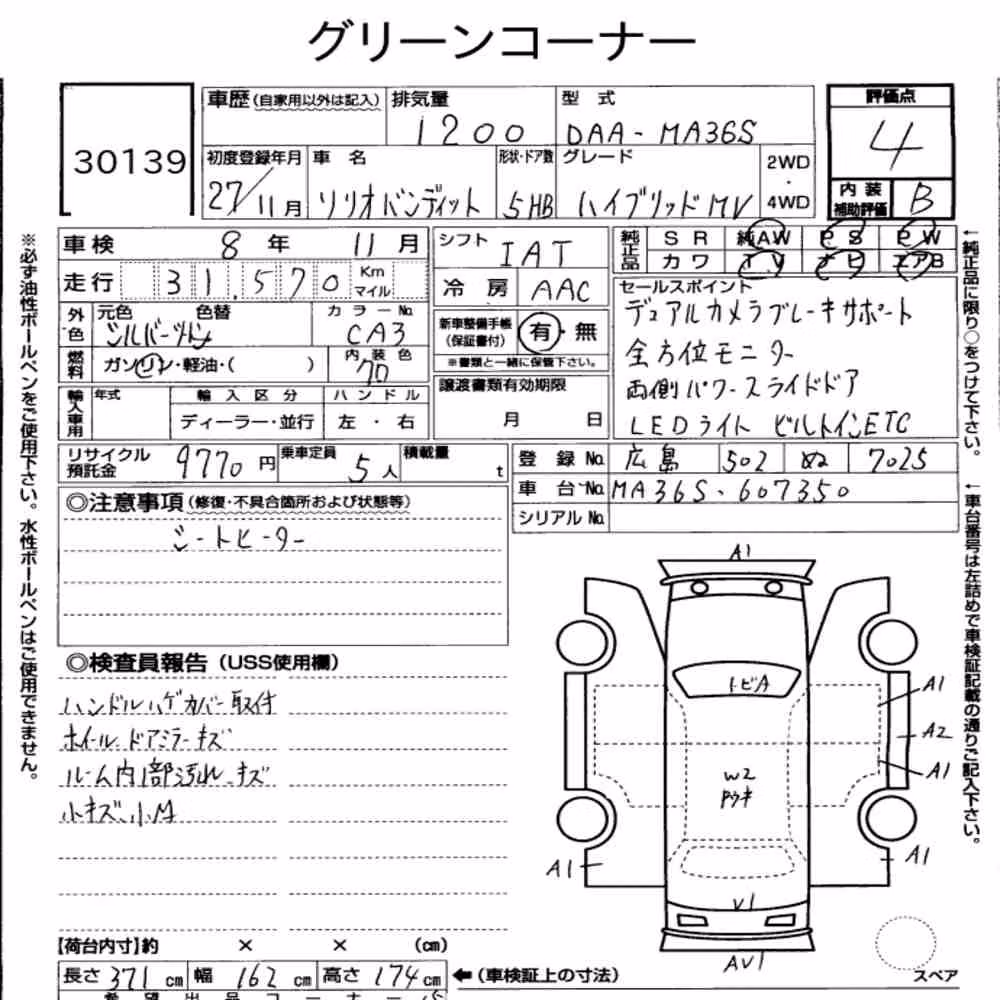 グリーンコーナー
30139
車歴(自家用以外は記入) 排気量 型式
1200 DAA-MA36S
評価点
4
初度登録年月 車名 形状・ドア数 グレード 2WD・4WD
27/11月 ソリオバンディット 5HB ハイブリッドMV
内装補助評価 B
車検 8年 11月
走行 31,570 Km マイル
外色 元色 色替 カラーNo.
シルバーツートン CA3
燃料 ガソリン・軽油・( ) 内装色 クロ
輸入車用 年式 輸入区分 ハンドル
ディーラー・並行 左・右
シフト IAT
冷房 AAC
新車整備手帳(保証書付) 有・無
※書類と一緒に保管下さい。
譲渡書類有効期限
月 日
純正品 SR 純AW PS PW
カワ TV ナビ エアB
セールスポイント
デュアルカメラブレーキサポート
全方位モニター
両側パワースライドドア
LEDライト ビルトインETC
リサイクル預託金 9770円 乗車定員 5人 積載量 t
登録No. 広島 502 ぬ 7025
車台No. MA36S-607350
シリアルNo.
◎注意事項(修復・不具合箇所および状態等)
シートヒーター
◎検査員報告(USS使用欄)
ハンドルハゲカバー取付
ホイール、ドアミラーキズ
ルーム内1部汚れ、キズ
小キズ、小凹
A1
トビA
A1
A2
A1
W2
A1
A1
V1
AV1
スペア
【荷台内寸】約 × × (cm)
長さ 371 cm 幅 162 cm 高さ 174 cm
←(車検証上の寸法)
希望出品コーナー
※必ず油性ボールペンをご使用下さい。水性ボールペンはご使用できません。
←純正品に限り○をつけて下さい。
←車台番号は左詰めで車検証記載の通りご記入下さい。